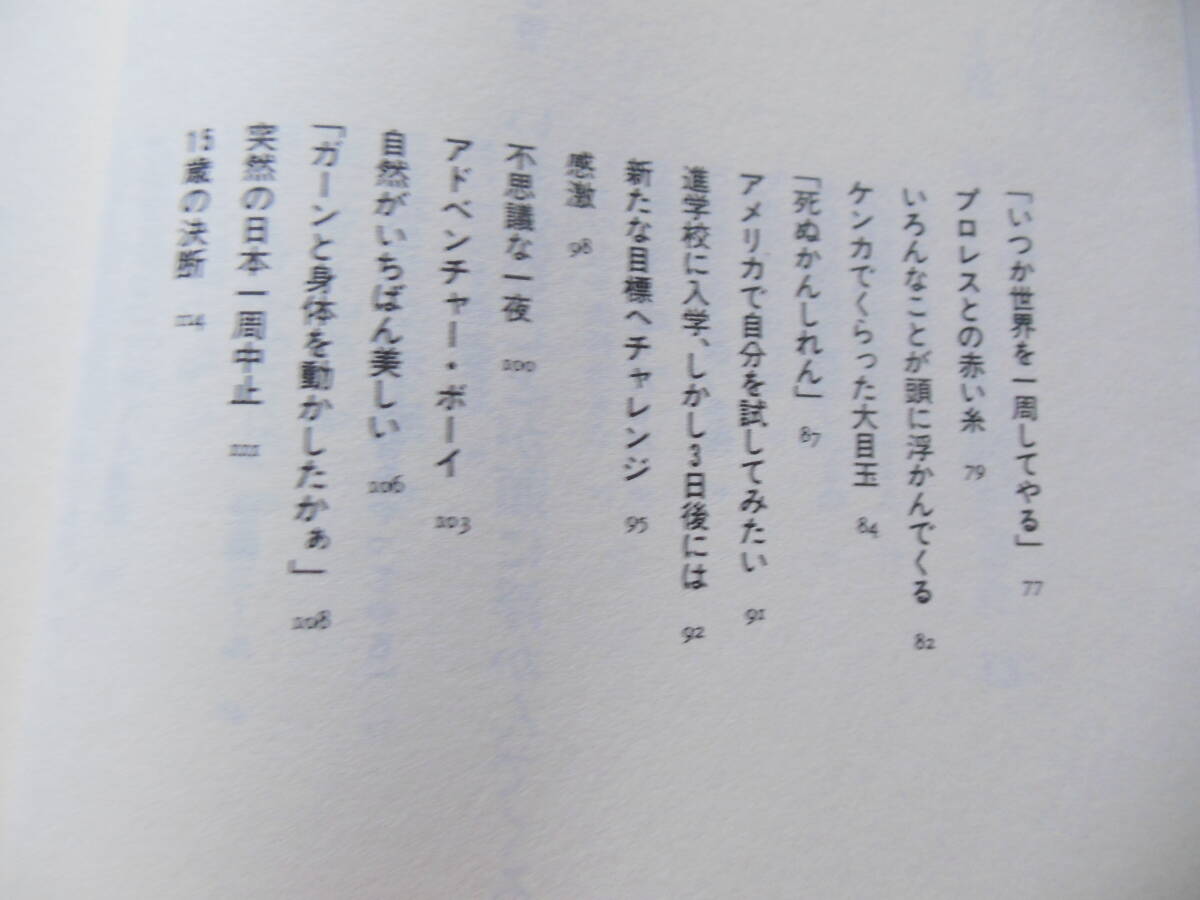 「いつか世界を一周してやる」 77
プロレスとの赤い糸 79
いろんなことが頭に浮かんでくる 82
ケンカでくらった大目玉 84
「死ぬかんしれん」 87
アメリカで自分を試してみたい 91
進学校に入学、しかし3日後には 92
新たな目標へチャレンジ 95
感激 98
不思議な一夜 100
アドベンチャー・ボーイ 103
自然がいちばん美しい 106
「ガーンと身体を動かしたかぁ」 108
突然の日本一周中止 111
15歳の決断 114